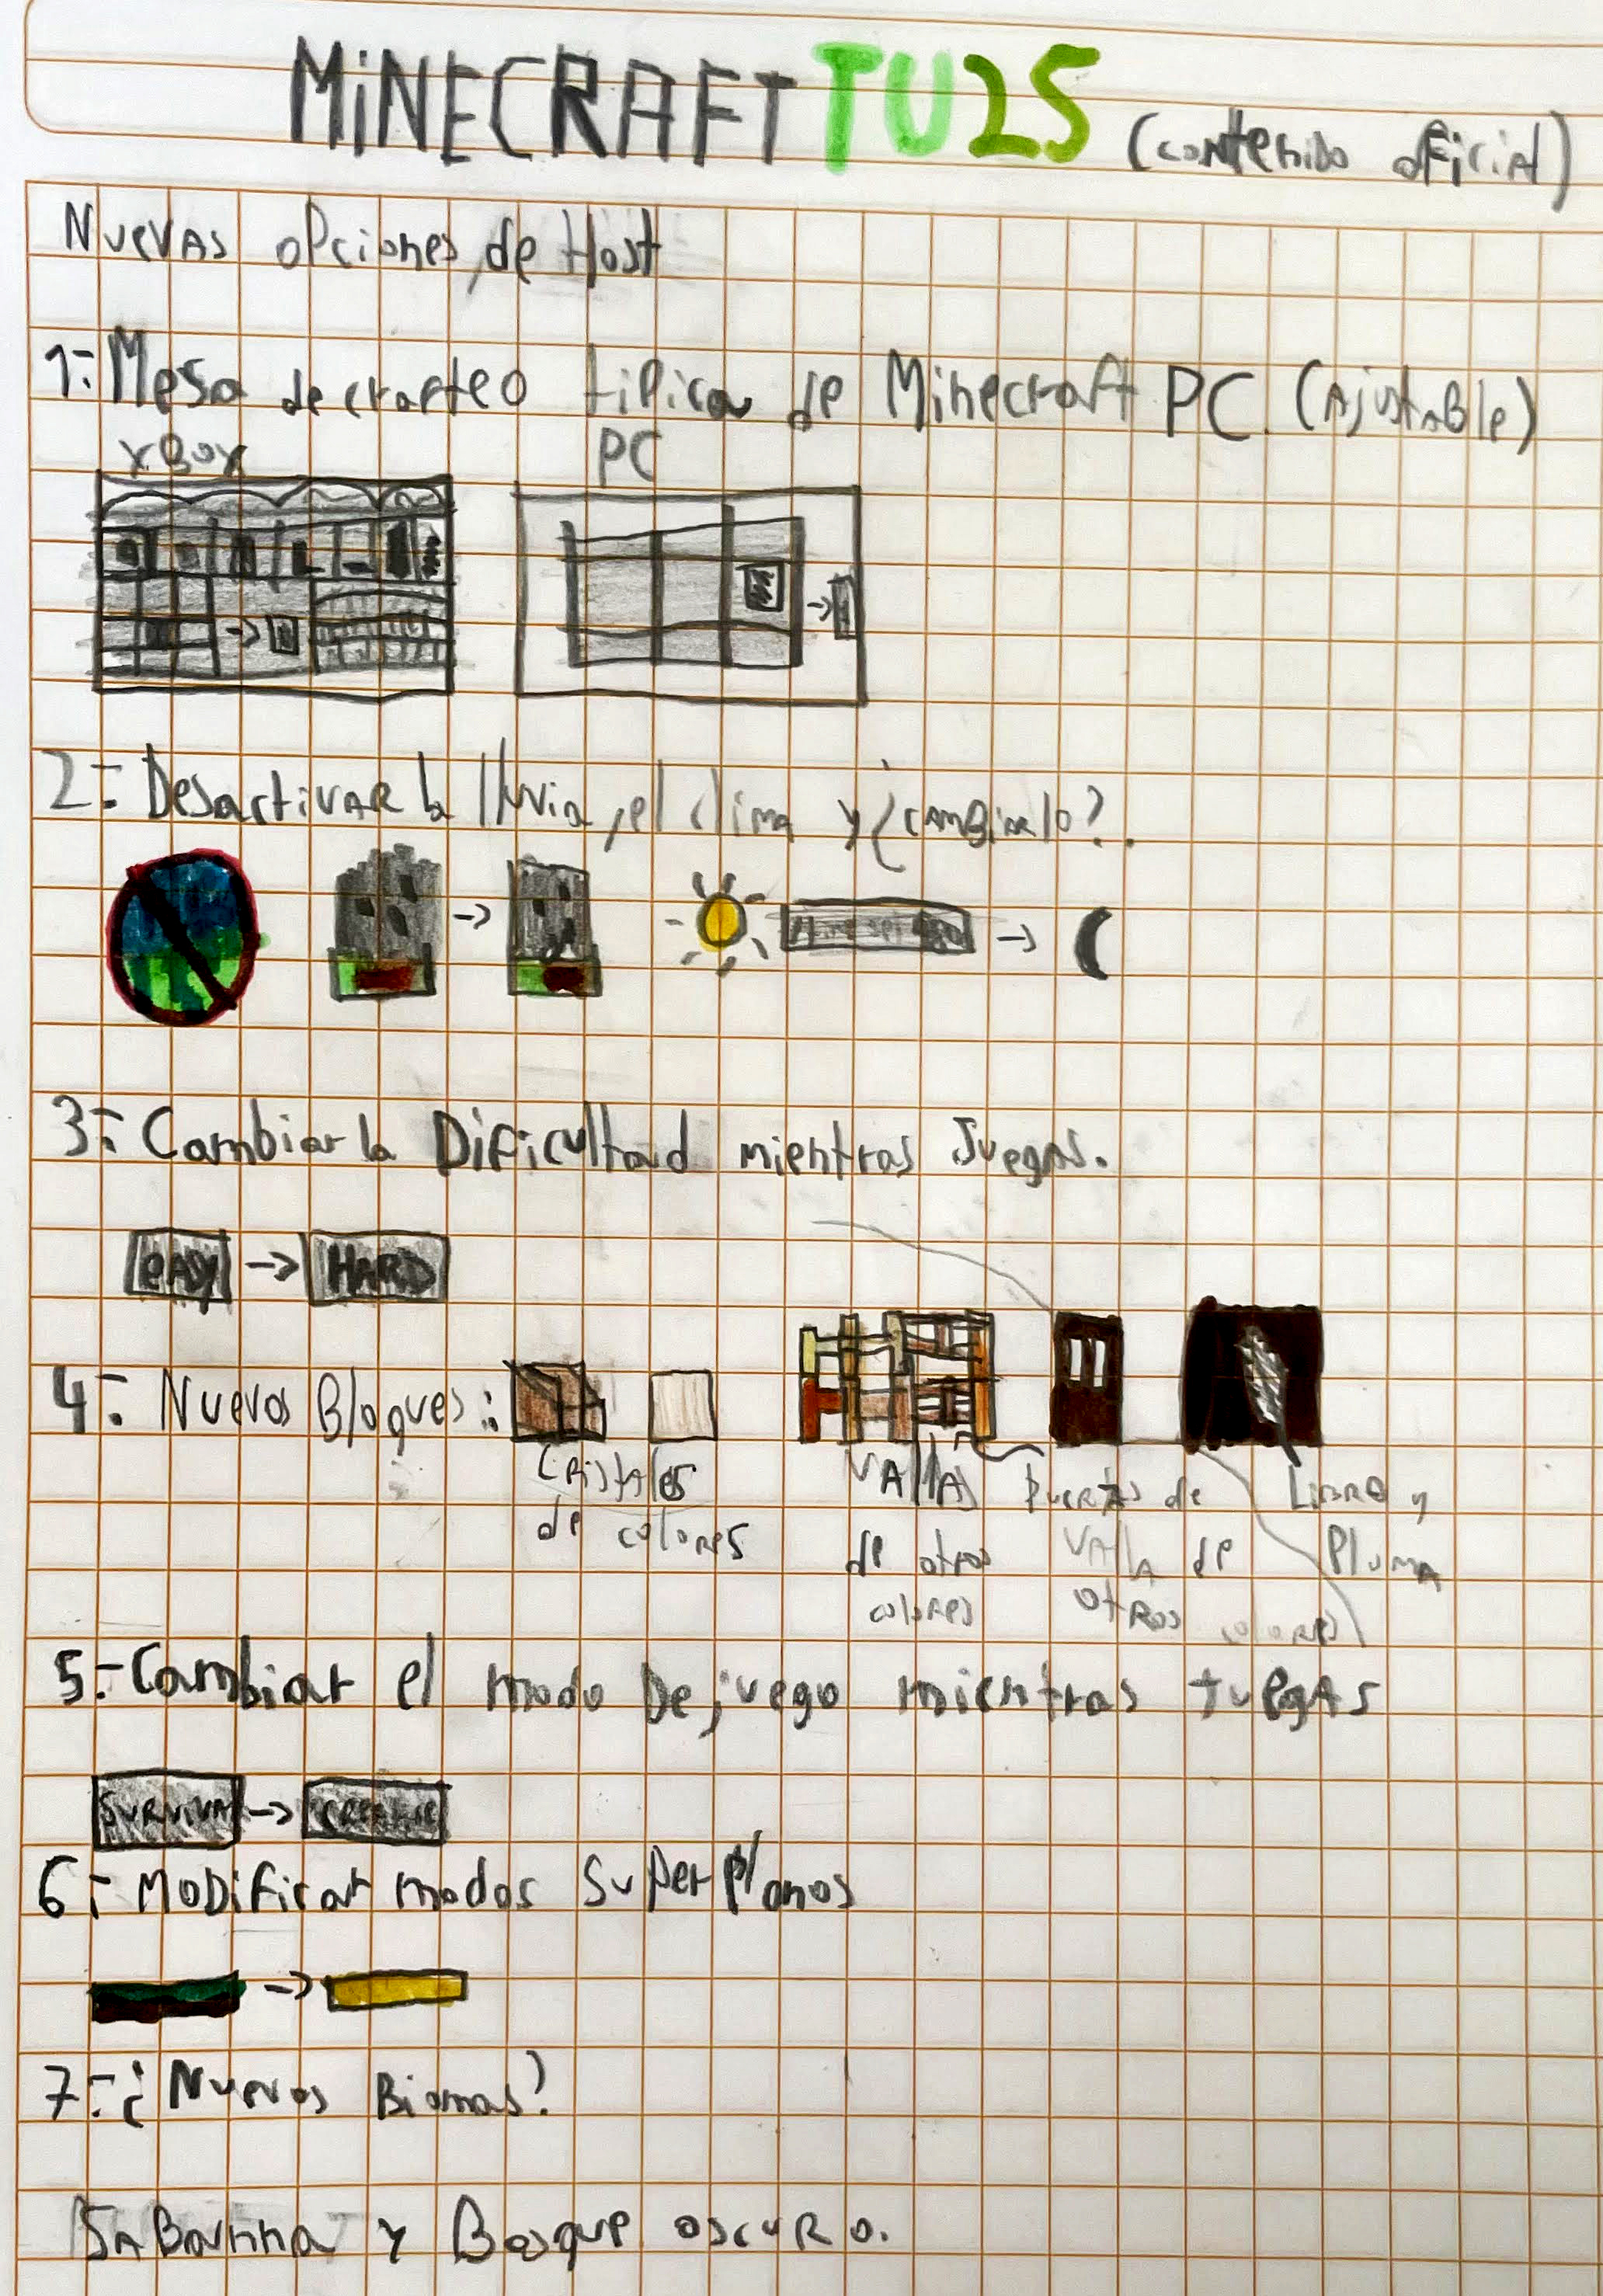 MiNECRAFT TU25 (contenido oficial)
Nuevas opciones de Host
1-: Mesa de crafteo tipica de Minecraft PC. (Ajustable)
XBOX PC
2-: Desactivar la lluvia, el clima y ¿cambiarlo?.
3-: Cambiar la Dificultad mientras Juegas.
EASY -> HARD
4-: Nuevos Bloques:
Cristales de colores
Vallas de otros colores
Puertas de valla de otros colores
Libro y Pluma
5-: Cambiar el modo De juego mientras Juegas
SURVIVAL -> CREATIVE
6-: Modificar modos Superplanos
7-: ¿Nuevos Biomas?
Sabanna y Bosque oscuro.